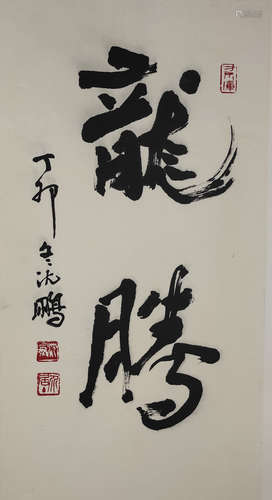 龍騰
丁卯冬沈鵬